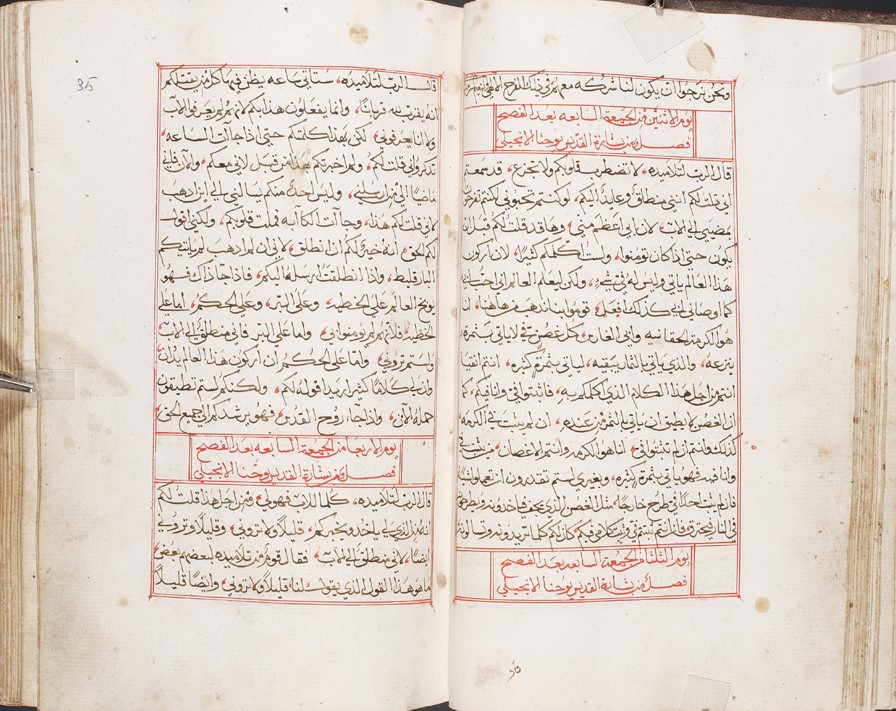 ونحن نرجوا ان يكون لنا شركه معهم في ذلك الفرح
يوم الاثنين من الجمعة السابعه بعد الفصح
فصل من بشارة القديس يوحنا الانجيلي
قال الرب لتلاميذه، لا تضطرب قلوبكم ولا تجزع، قد سمعتم
اني قلت لكم انني منطلق وعايد اليكم، لو كنتم تحبوني كنتم تفرحون
بمضيي الي الاب، لان ابي اعظم مني، وها قد قلت لكم قبل ان
يكون حتي اذا كان تومنوا، ولست اكلمكم كثيرًا، لان اركون
هذا العالم ياتي وليس له في شي، ولكن ليعلم العالم اني احب الاب
كما اوصاني ابي كذلك افعل، قوموا بنا نذهب من هاهنا، انا
هو الكرمة الحقانيه وابي الغارس، كل غصن في لا ياتي بثمره
ينزعه، والذي ياتي باثمار ينقيه، لياتي بثمرة كثيره، انتم انقيا
انتم من اجل هذا الكلام الذي كلمتكم به، فاثبتوا في وانا فيكم، كما
ان الغصن لا يطيق ان ياتي بالثمر من عنده، ان لم يثبت في الكرمه
كذلك وانتم ان لم تثبتوا في، انا هو الكرمه وانتم الاغصان، من يثبت في
وانا فيه فهو ياتي بثمرة كثيره، وبغيري لستم تقدرون ان تعملوا شيا
فان لم يثبت احدًا في طرح خارجًا، مثل الغصن الذي يجف فياخذونه ويطرحونه
في النار فيحترق، فان انتم ثبتم في وثبت كلامي فيكم كان لكم كلما تريدونه وتسالونه
يوم الثلثا من الجمعة السابعه بعد الفصح
فصل من بشارة القديس يوحنا الانجيلي
35
قال الرب لتلاميذه، ستاتي ساعه يظن فيها كل من يقتلكم
انه يقرب لله قربانًا، وانما يفعلون هذا بكم لانهم لم يعرفوا الاب
ولا انا يعرفوني، لكن بهذا كلمتكم حتي اذا جات الساعه،
تذكروا اني قلت لكم، ولم اخبرتكم بهذا من قبل لاني معكم، والان فاني
ماضيًا الي من ارسلني، وليس احدًا منكم يسالني الي اين اذهب
لاني قلت لكم هذا، وجات الكآبه فملت قلوبكم، ولكني اقول
لكم الحق، انه خيرًا لكم ان انطلق، لاني ان لم اذهب لم ياتيكم
البارقليط، واذا انطلقت ارسله اليكم، فاذا جا ذاك فهو
يوبخ العالم علي الخطيه، وعلي البر، وعلي الحكم، اما علي
الخطيه فلانهم لم يومنوا بي، واما علي البر فاني منطلق الي الاب
ولستم تروني، واما علي الحكم ان اركون هذا العالم يدان
وان لي كلامًا كثير اريد اقوله لكم، ولكنكم لستم تطيقون
حمله الان، واذا جا روح القدس، فهو يرشدكم الي جميع الحق،
يوم الاربعا من الجمعة السابعه بعد الفصح
فصل من بشارة القديس يوحنا الانجيلي
قال الرب لتلاميذه، كلما للاب فهو لي، فمن اجل هذا قلت لكم
انه من الذي لي ياخذ ويخبركم، قليلًا ولا تروني، وقليلًا وتروني
ايضًا، لاني منطلق الي الاب، فقال قوم من تلاميذه لبعضهم بعض
ما هو هذا القول الذي يقول لنا، قليلًا ولا تروني، وايضًا قليلًا